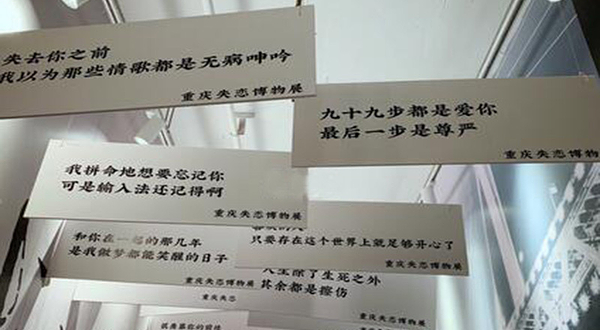 失去你之前
我以为那些情歌都是无病呻吟
重庆失恋博物展
九十九步都是爱你
最后一步是尊严
重庆失恋博物
我拼命地想要忘记你
可是输入法还记得啊
重庆失恋博物展
和你在一起的那几年
是我做梦都能笑醒的日子
重庆失恋博物展
只要存在这个世界上就足够开心了
重庆失恋博物展
人生除了生死之外
其余都是擦伤
重庆失恋博物展
重庆失恋